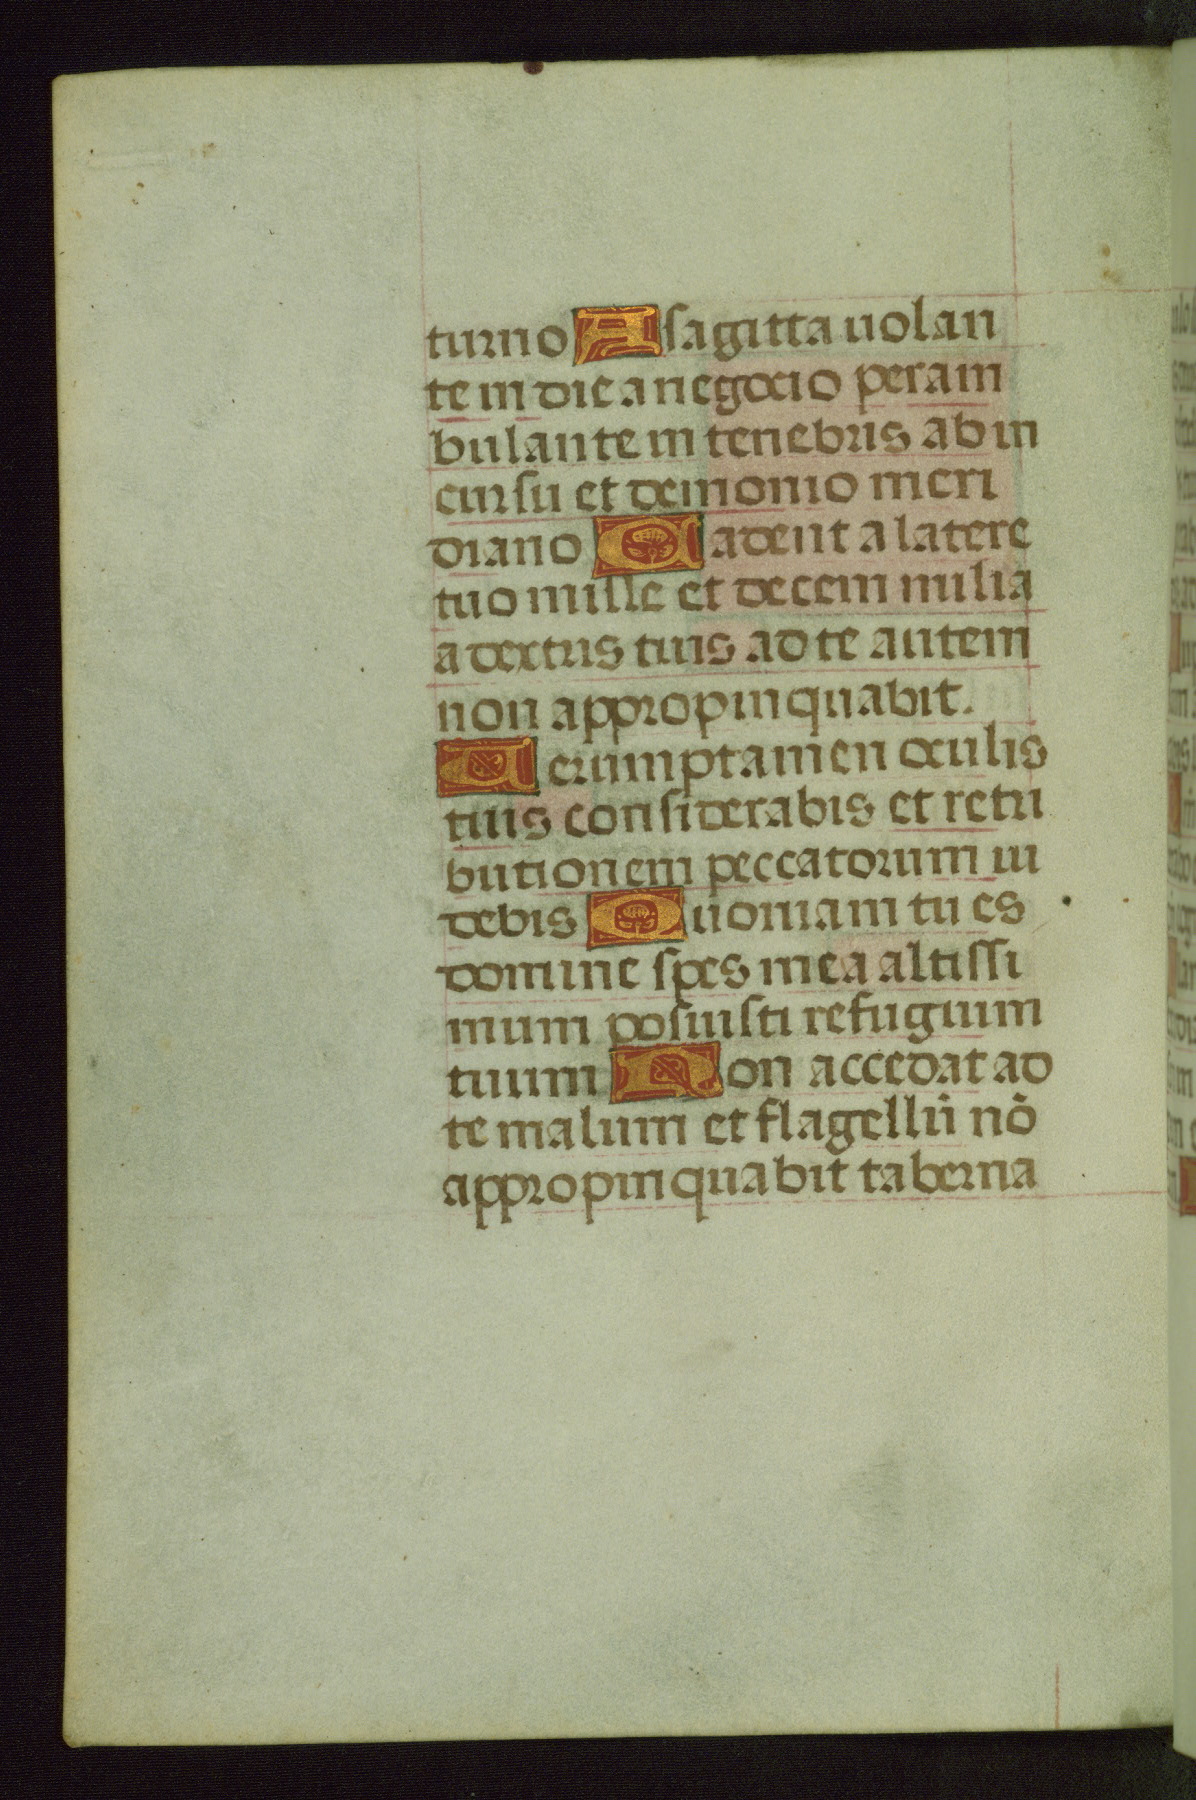 turno A sagitta uolan
te in die a negocio peram
bulante in tenebris ab in
cursu et demonio meri
diano Cadent a latere
tuo mille et decem milia
a dextris tuis ad te autem
non appropinquabit.
Uerumptamen oculis
tuis considerabis et retri
butionem peccatorum ui
debis Quoniam tu es
domine spes mea altissi
mum posuisti refugium
tuum Non accedat ad
te malum et flagellū nō
appropinquabit taberna